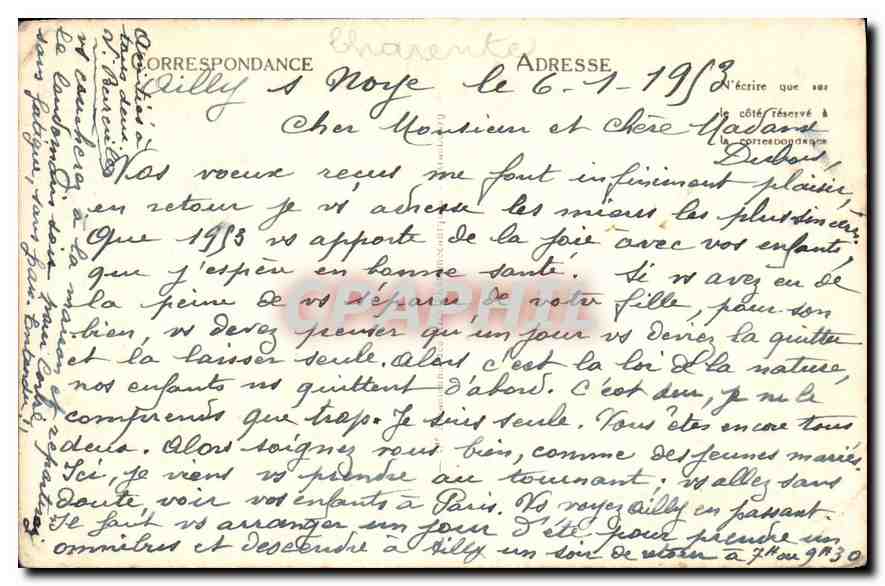 Charente
CORRESPONDANCE
ADRESSE
N'écrire que sur
le côté réservé à
la correspondance
Ailly s Noye le 6-1-1953
Cher Monsieur et chère Madame
Dubois,
Vos voeux reçus me font infiniment plaisir,
en retour je vs adresse les miens les plus sincères.
Que 1953 vs apporte de la joie avec vos enfants,
que j'espère en bonne santé. Si vs avez eu de
la peine de vs séparer de votre fille, pour son
bien, vs devez penser qu'un jour vs devriez la quitter
et la laisser seule. Alors c'est la loi de la nature,
nos enfants ns quittent d'abord. C'est dur, je ne le
comprends que trop. Je suis seule. Vous êtes encore tous
deux. Alors soignez vous bien, comme des jeunes mariés.
Ici, je viens vs prendre au tournant; vs allez sans
doute, voir vos enfants à Paris. Vs voyez Ailly en passant.
Il faut vs arranger un jour d'été pour prendre un
omnibus et descendre à Ailly un soir de retour à 7H ou 9H30
vs couchez à la maison et repartirez
le lendemain soir pour
sans fatigue, sans frais. Entendu!,
Amitiés à
tous deux
V.
CPAPHIL